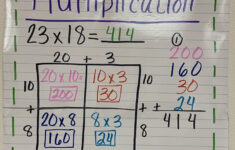 Multiplication
23 x 18 = 414
①
20 + 3
200
160
30
+ 24
414
10
20 x 10 =
200
10 x 3
30
10
+
+
8
20 x 8
160
8 x 3
24
8